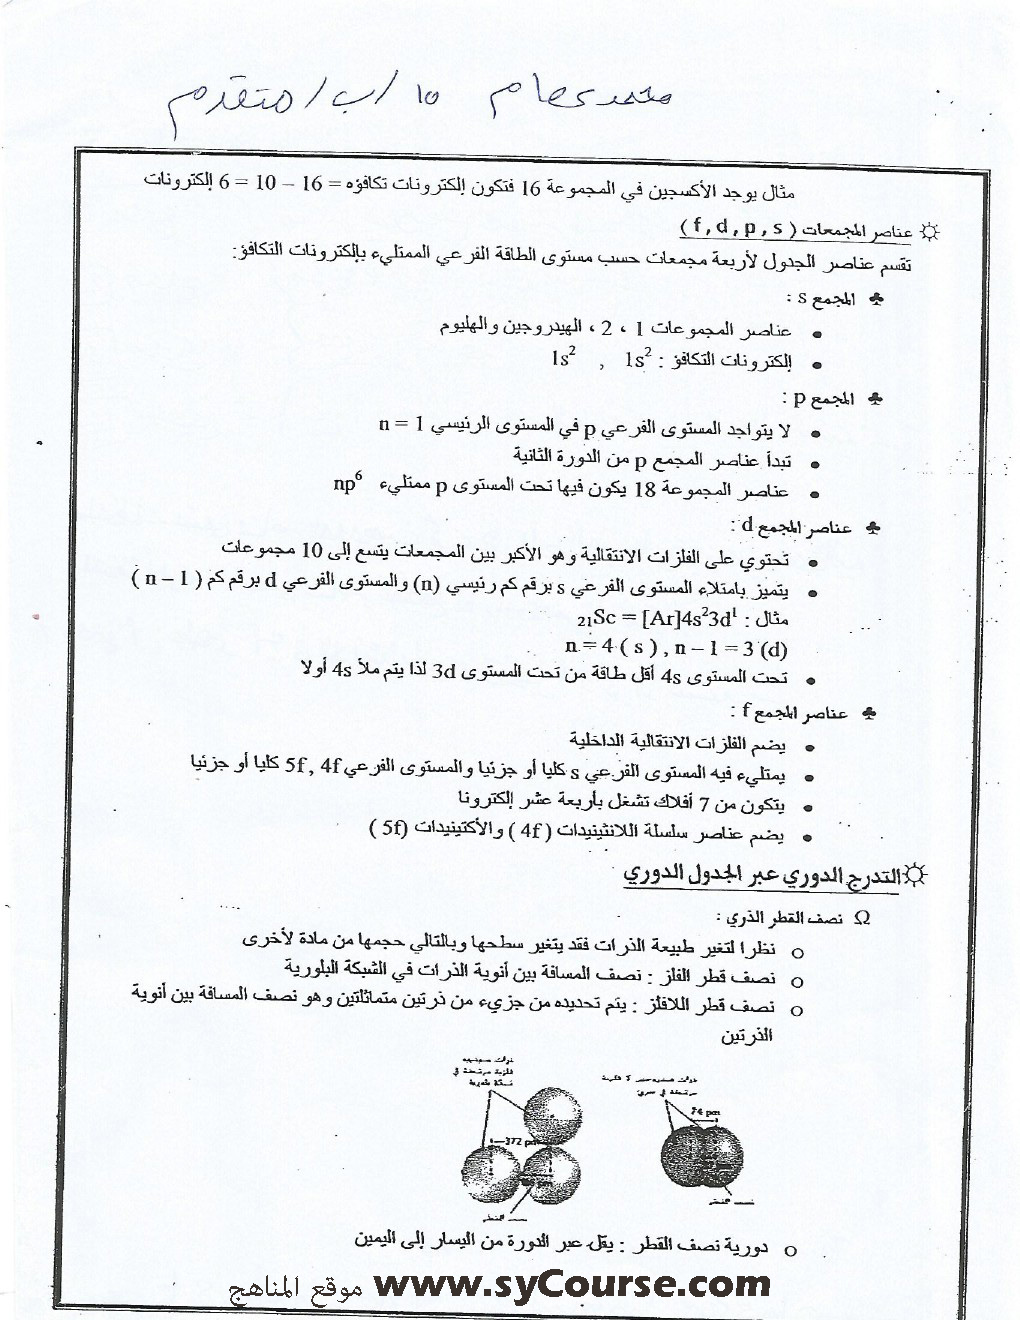 محمد عصام ١٥ / ب / متقدم
مثال يوجد الأكسجين في المجموعة 16 فتكون إلكترونات تكافؤه = 16 – 10 = 6 إلكترونات
عناصر المجمعات ( f , d , p , s )
تقسم عناصر الجدول لأربعة مجمعات حسب مستوى الطاقة الفرعي الممتليء بإلكترونات التكافؤ:
♣ المجمع s :
• عناصر المجموعات 1 ، 2 ، الهيدروجين والهليوم
• إلكترونات التكافؤ : 1s² , 1s²
♣ المجمع p :
• لا يتواجد المستوى الفرعي p في المستوى الرئيسي n = 1
• تبدأ عناصر المجمع p من الدورة الثانية
• عناصر المجموعة 18 يكون فيها تحت المستوى p ممتليء np⁶
♣ عناصر المجمع d :
• تحتوي على الفلزات الانتقالية وهو الأكبر بين المجمعات يتسع إلى 10 مجموعات
• يتميز بامتلاء المستوى الفرعي s برقم كم رئيسي (n) والمستوى الفرعي d برقم كم ( n – 1 )
مثال : ₂₁Sc = [Ar]4s²3d¹
n = 4 ( s ) , n – 1 = 3 (d)
• تحت المستوى 4s أقل طاقة من تحت المستوى 3d لذا يتم ملأ 4s أولا
♣ عناصر المجمع f :
• يضم الفلزات الانتقالية الداخلية
• يمتليء فيه المستوى الفرعي s كليا أو جزئيا والمستوى الفرعي 5f , 4f كليا أو جزئيا
• يتكون من 7 أفلاك تشغل بأربعة عشر إلكترونا
• يضم عناصر سلسلة اللانثينيدات ( 4f ) والأكتينيدات (5f )
التدرج الدوري عبر الجدول الدوري
Ω نصف القطر الذري :
o نظرا لتغير طبيعة الذرات فقد يتغير سطحها وبالتالي حجمها من مادة لأخرى
o نصف قطر الفلز : نصف المسافة بين أنوية الذرات في الشبكة البلورية
o نصف قطر اللافلز : يتم تحديده من جزيء من ذرتين متماثلتين وهو نصف المسافة بين أنوية
الذرتين
74 pm
372 pm
نصف القطر
نصف القطر
o دورية نصف القطر : يقل عبر الدورة من اليسار إلى اليمين
موقع المناهج www.syCourse.com